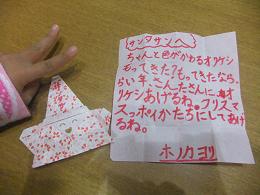 サンタサンへ
ちゃんと色がかわるオリケシ
もってきた?もってきたなら、
らい年こんたさんに
リケシあげるね。クリスマ
スっぽいかたちにしてあげ
るね。
ホノカヨリ